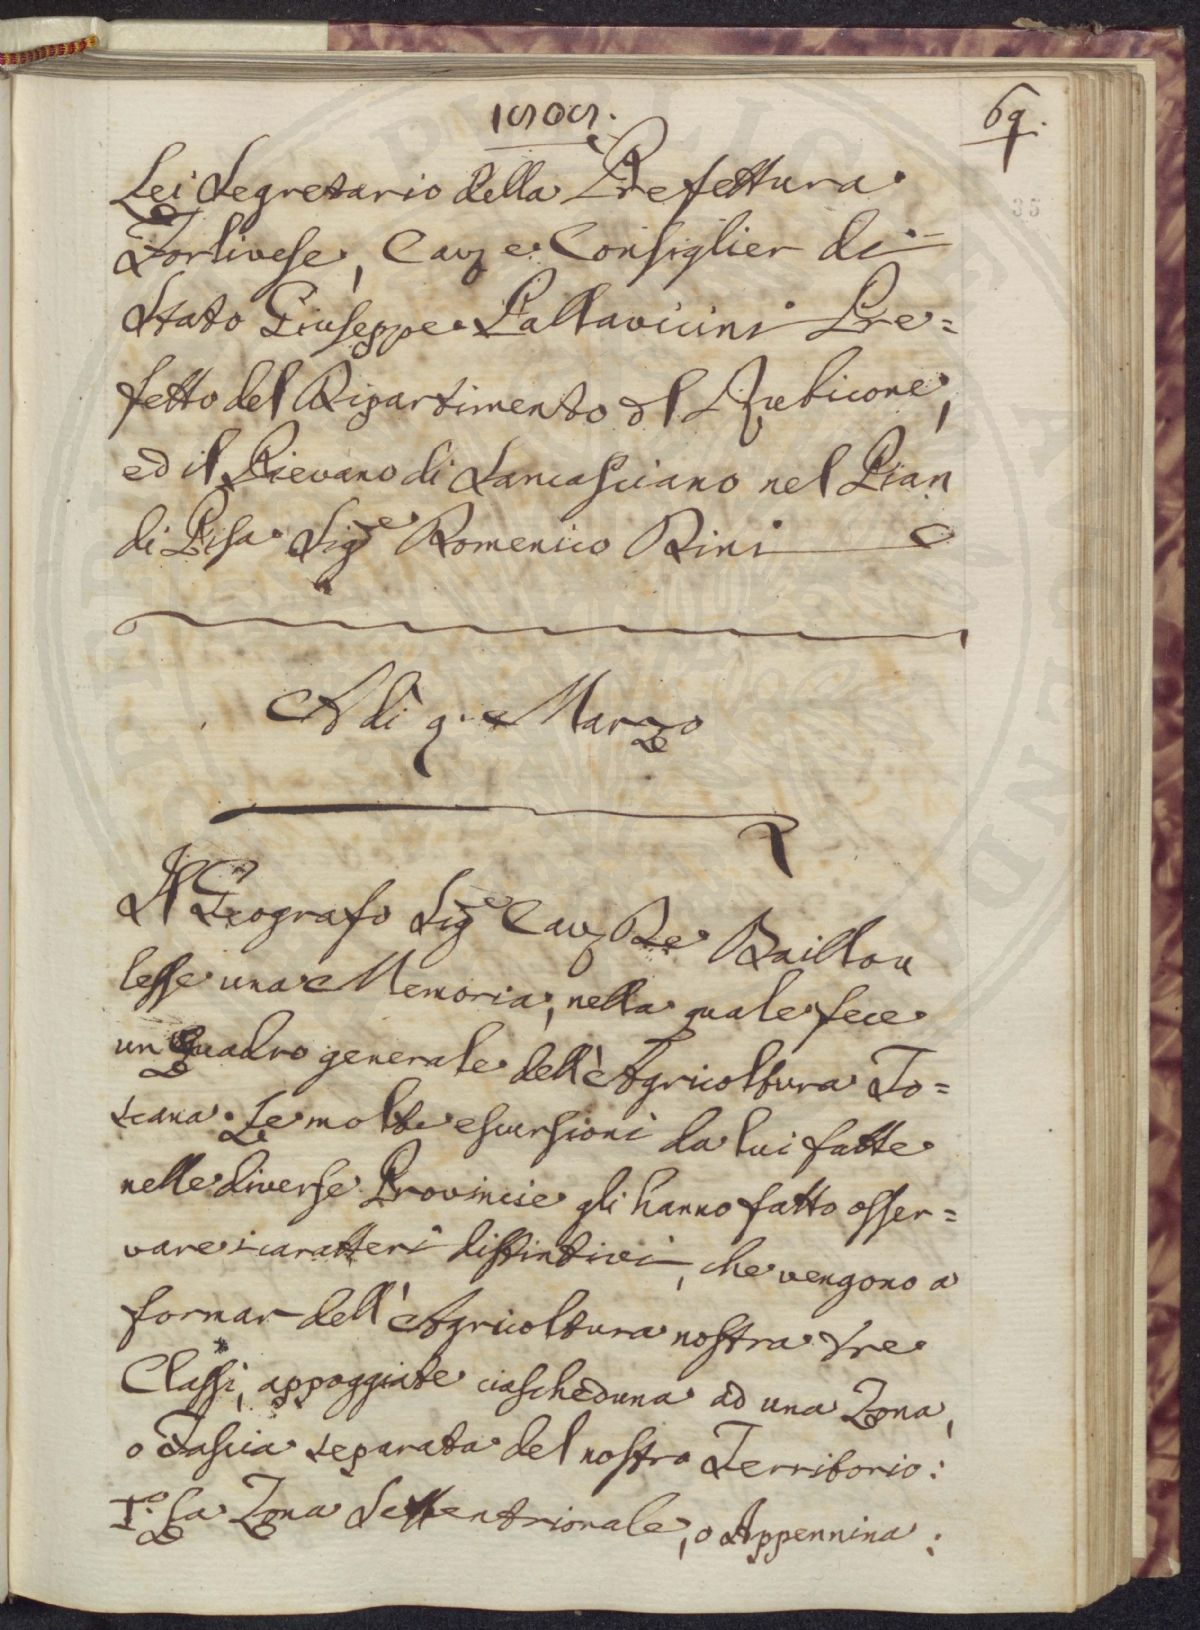 1808.
69.
35
Lei Segretario della Prefettura
Forlivese, Cavr e Consiglier di
Stato Giuseppe Pallavicini Pre=
fetto del Dipartimento dl Rubicone,
ed il Pievano di Sancasciano nel Pian
di Pisa Sigre Domenico Dini
Adì 9. Marzo
Il Geografo Sigre Cavr De Baillou
lesse una Memoria, nella quale fece
un Quadro generale dell'Agricoltura To=
scana. Le molte escursioni da lui fatte
nelle diverse Provincie gli hanno fatto osser=
vare i caratteri distintivi, che vengono a
formar dell'Agricoltura nostra tre
Classi, appoggiate ciascheduna ad una Zona,
o Fascia separata del nostro Territorio:
I.o La Zona Settentrionale, o Appennina: